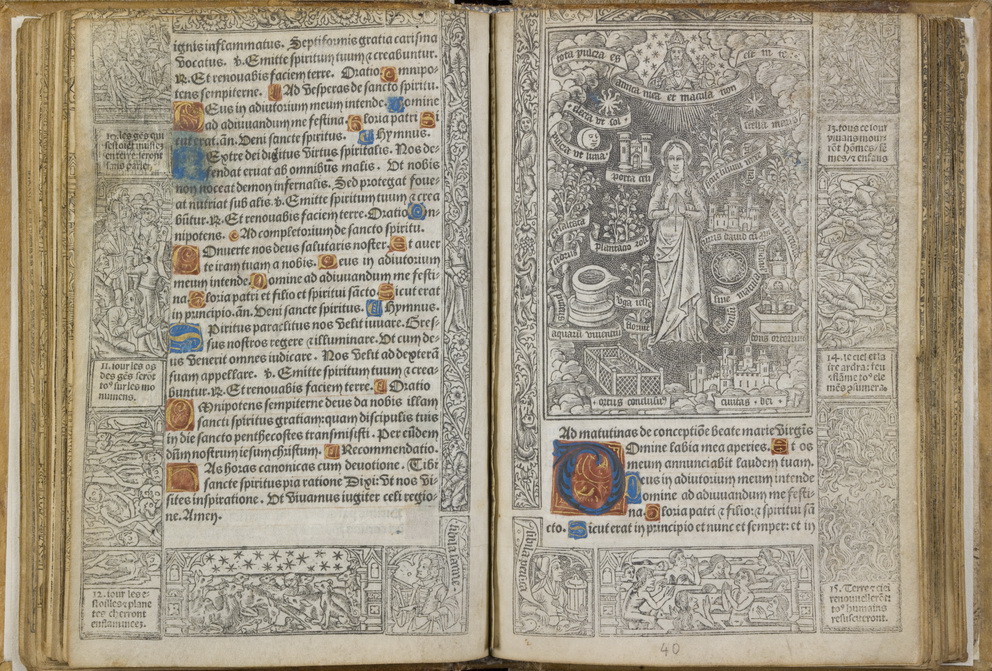 ignis inflammatus. Septiformis gratia carisma
vocatus. v. Emitte spiritum tuum ⁊ creabuntur.
R. Et renovabis faciem terre. Oratio. Omnipo-
tens sempiterne. Ad vesperas de sancto spiritu.
Deus in adiutorium meum intende. Domine
ad adiuvandum me festina. Gloria patri. Si
cut erat. añ. Veni sancte spiritus. Hymnus.
Dextre dei digitus virtus spiritalis. Nos de-
fendat eruat ab omnibus malis. Ut nobis
non noceat demon infernalis. Sed protegat foue-
at nutriat sub alis. v. Emitte spiritum tuum ⁊ crea
būtur. R. Et renovabis faciem terre. Oratio Om-
nipotens. Ad completorium de sancto spiritu.
Converte nos deus salutaris noster. Et aver
te iram tuam a nobis. Deus in adiutorium
meum intende. Domine ad adiuvandum me festi
na. Gloria patri et filio et spiritui sācto. Sicut erat
in principio. añ. Veni sancte spiritus. Hymnus.
Spiritus paraclitus nos velit iuvare. Gres-
sus nostros regere ⁊ illuminare. Ut cum de-
us venerit omnes iudicare. Nos velit ad dexterā
suam appellare. v. Emitte spiritum tuum ⁊ crea-
buntur. R. Et renovabis faciem terre. Oratio
Omnipotens sempiterne deus da nobis illam
sancti spiritus gratiam: quam discipulis tuis
in die sancto penthecostes transmisisti. Per eūdem
dūm nostrum iesum christum. Recommendatio.
Has horas canonicas cum devotione. Tibi
sancte spiritus pia ratione Dixi: ut nos vi-
sites inspiratione. Ut vivamus iugiter celi regio-
ne. Amen.
10. les gēs qui
en terre iront
sans parler.
11. iour les os
des gēs serōt
to9 sur les mo
numens.
12. iour les e-
stoilles ⁊ plane
tes cherront
enflammees.
tota pulcra es
amica mea et macula non
est in te
electa ut sol
stella maris
pulcra ut luna
porta celi
exaltata
cedrus
plantatio rose
turris david
virga iesse
floruit
puteus
aquarū viventiū
speculū
sine macula
fons ortorum
ortus conclusus
civitas dei
Ad matutinas de conceptiōe beate marie virgīs
Domine labia mea aperies. Et os
meum annunciabit laudem tuam.
Deus in adiutorium meum intende
Domine ad adiuvandum me festi-
na. Gloria patri ⁊ filio: ⁊ spiritui sā
cto. Sicut erat in principio et nunc et semper: et in
13. tous ce iour
vivans mour
rōt hōmes/ fē
mes/ ⁊ enfans
14. le ciel et la
tre ardra: feu
⁊ flāme to9 ele
mēs plumera.
15. Terre ⁊ ciel
renouvellerōt ⁊
to9 humains
resusciteront.
40